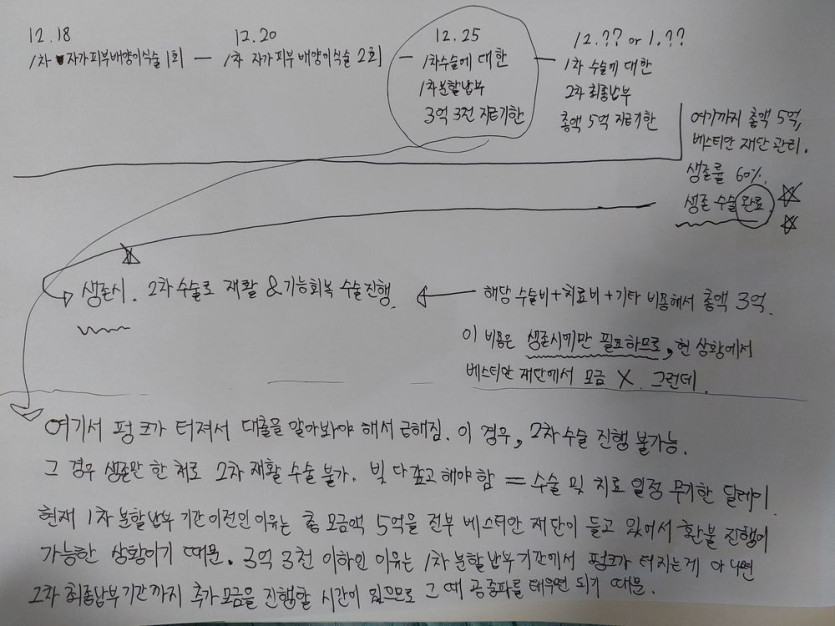 12.18
1차 자가피부배양이식술 1회 —
12.20
1차 자가피부배양이식술 2회 —
12.25
1차수술에 대한
1차분할납부
3억 3천 지급기한
12.?? or 1.??
1차 수술에 대한
2차 최종납부
총액 5억 지급기한
여기까지 총액 5억,
베스티안 재단 관리.
생존률 60%.
생존 수술 완료
생존시. 2차수술로 재활 & 기능회복 수술진행.
해당 수술비+치료비+기타 비용해서 총액 3억.
이 비용은 생존시에만 필요하므로, 현 상황에서
베스티안 재단에서 모금 X. 그런데
여기서 펑크가 터져서 대출을 알아봐야 해서 급해짐. 이 경우, 2차수술 진행 불가능.
그 경우 생존만 한 채로 2차 재활 수술 불가. 빚 다 갚고 해야 함 = 수술 및 치료 일정 무기한 딜레이.
현재 1차 분할납부 기간 이전인 이유는 총 모금액 5억을 전부 베스티안 재단이 들고 있어서 환불 진행이
가능한 상황이기 때문. 3억 3천 이하인 이유는 1차 분할납부기간에서 펑크가 터지는게 아니면
2차 최종납부기간까지 추가모금을 진행할 시간이 있으므로 그 때 공중파를 태우면 되기 때문.